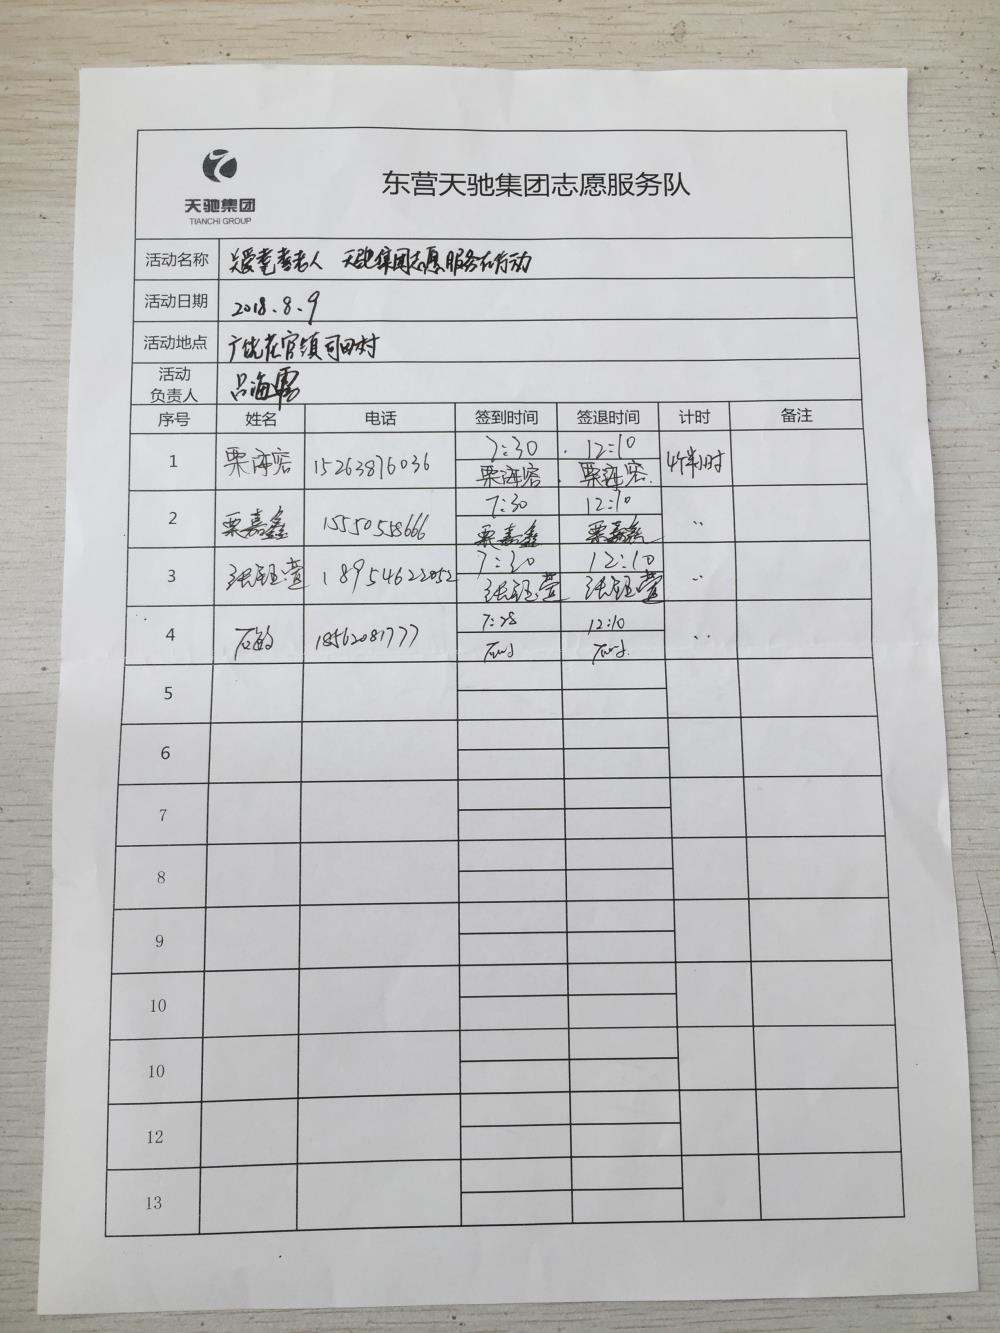 天驰集团
TIANCHI GROUP
东营天驰集团志愿服务队
活动名称 关爱耄耋老人 天驰集团志愿服务在行动
活动日期 2018.8.9
活动地点 广饶花官镇司田村
活动
负责人 吕海雷
序号 姓名 电话 签到时间 签退时间 计时 备注
1 栗海容 15263876036 7:30 12:10 4个半小时
栗海容 栗海容
2 栗嘉鑫 15550558666 7:30 12:10 〃
栗嘉鑫 栗嘉鑫
3 张钰萱 18954622052 7:30 12:10 〃
张钰萱 张钰萱
4 石敏 18562081777 7:28 12:10 〃
石敏 石敏
5
6
7
8
9
10
10
12
13